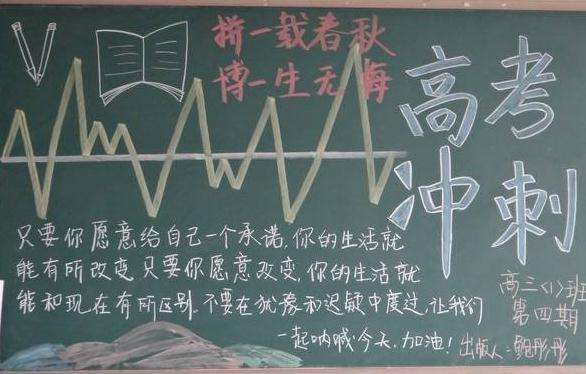 拼一载春秋
博一生无悔
高考
冲刺
只要你愿意给自己一个承诺,你的生活就
能有所改变,只要你愿意改变,你的生活就
能和现在有所区别.不要在犹豫和迟疑中度过,让我们
一起呐喊:今天,加油!
高三〈1〉班
第四期
出版人:鲍彤彤